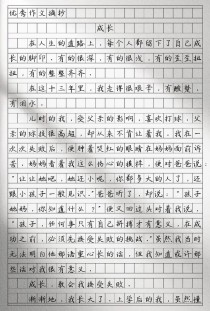 优秀作文摘抄
成长
在人生的道路上，每个人都留下了自己成
长的脚印，有的很深，有的很浅，有的歪歪扭
扭，有的整整齐齐。
在这十三年里，我走得很艰辛，有酸楚，
有泪水。
儿时的我，受父亲的影响，喜欢打球，父
亲的球技很高超，却从来不肯让着我，我在一
次次失败后，便肿着哭红的眼睛在妈妈面前诉
苦，妈妈看着我这么伤心的模样，便对爸爸说：
“让让她吧，她还小呢，你都多大的人了，还
跟小孩子一般见识。”爸爸听了，却说：“孩子
她妈，你知道什么？”便又回过头对着我说，
“孩子，任何事只有自己得到才有意义，在成
功之前，必须先接受失败的挑战。”虽然我当时
无法明白他那语重心长的话，但我知道或许那
些话对我很有意义。
成长，教会我接受失败。
渐渐地，我长大了，上学后的我，虽然懂